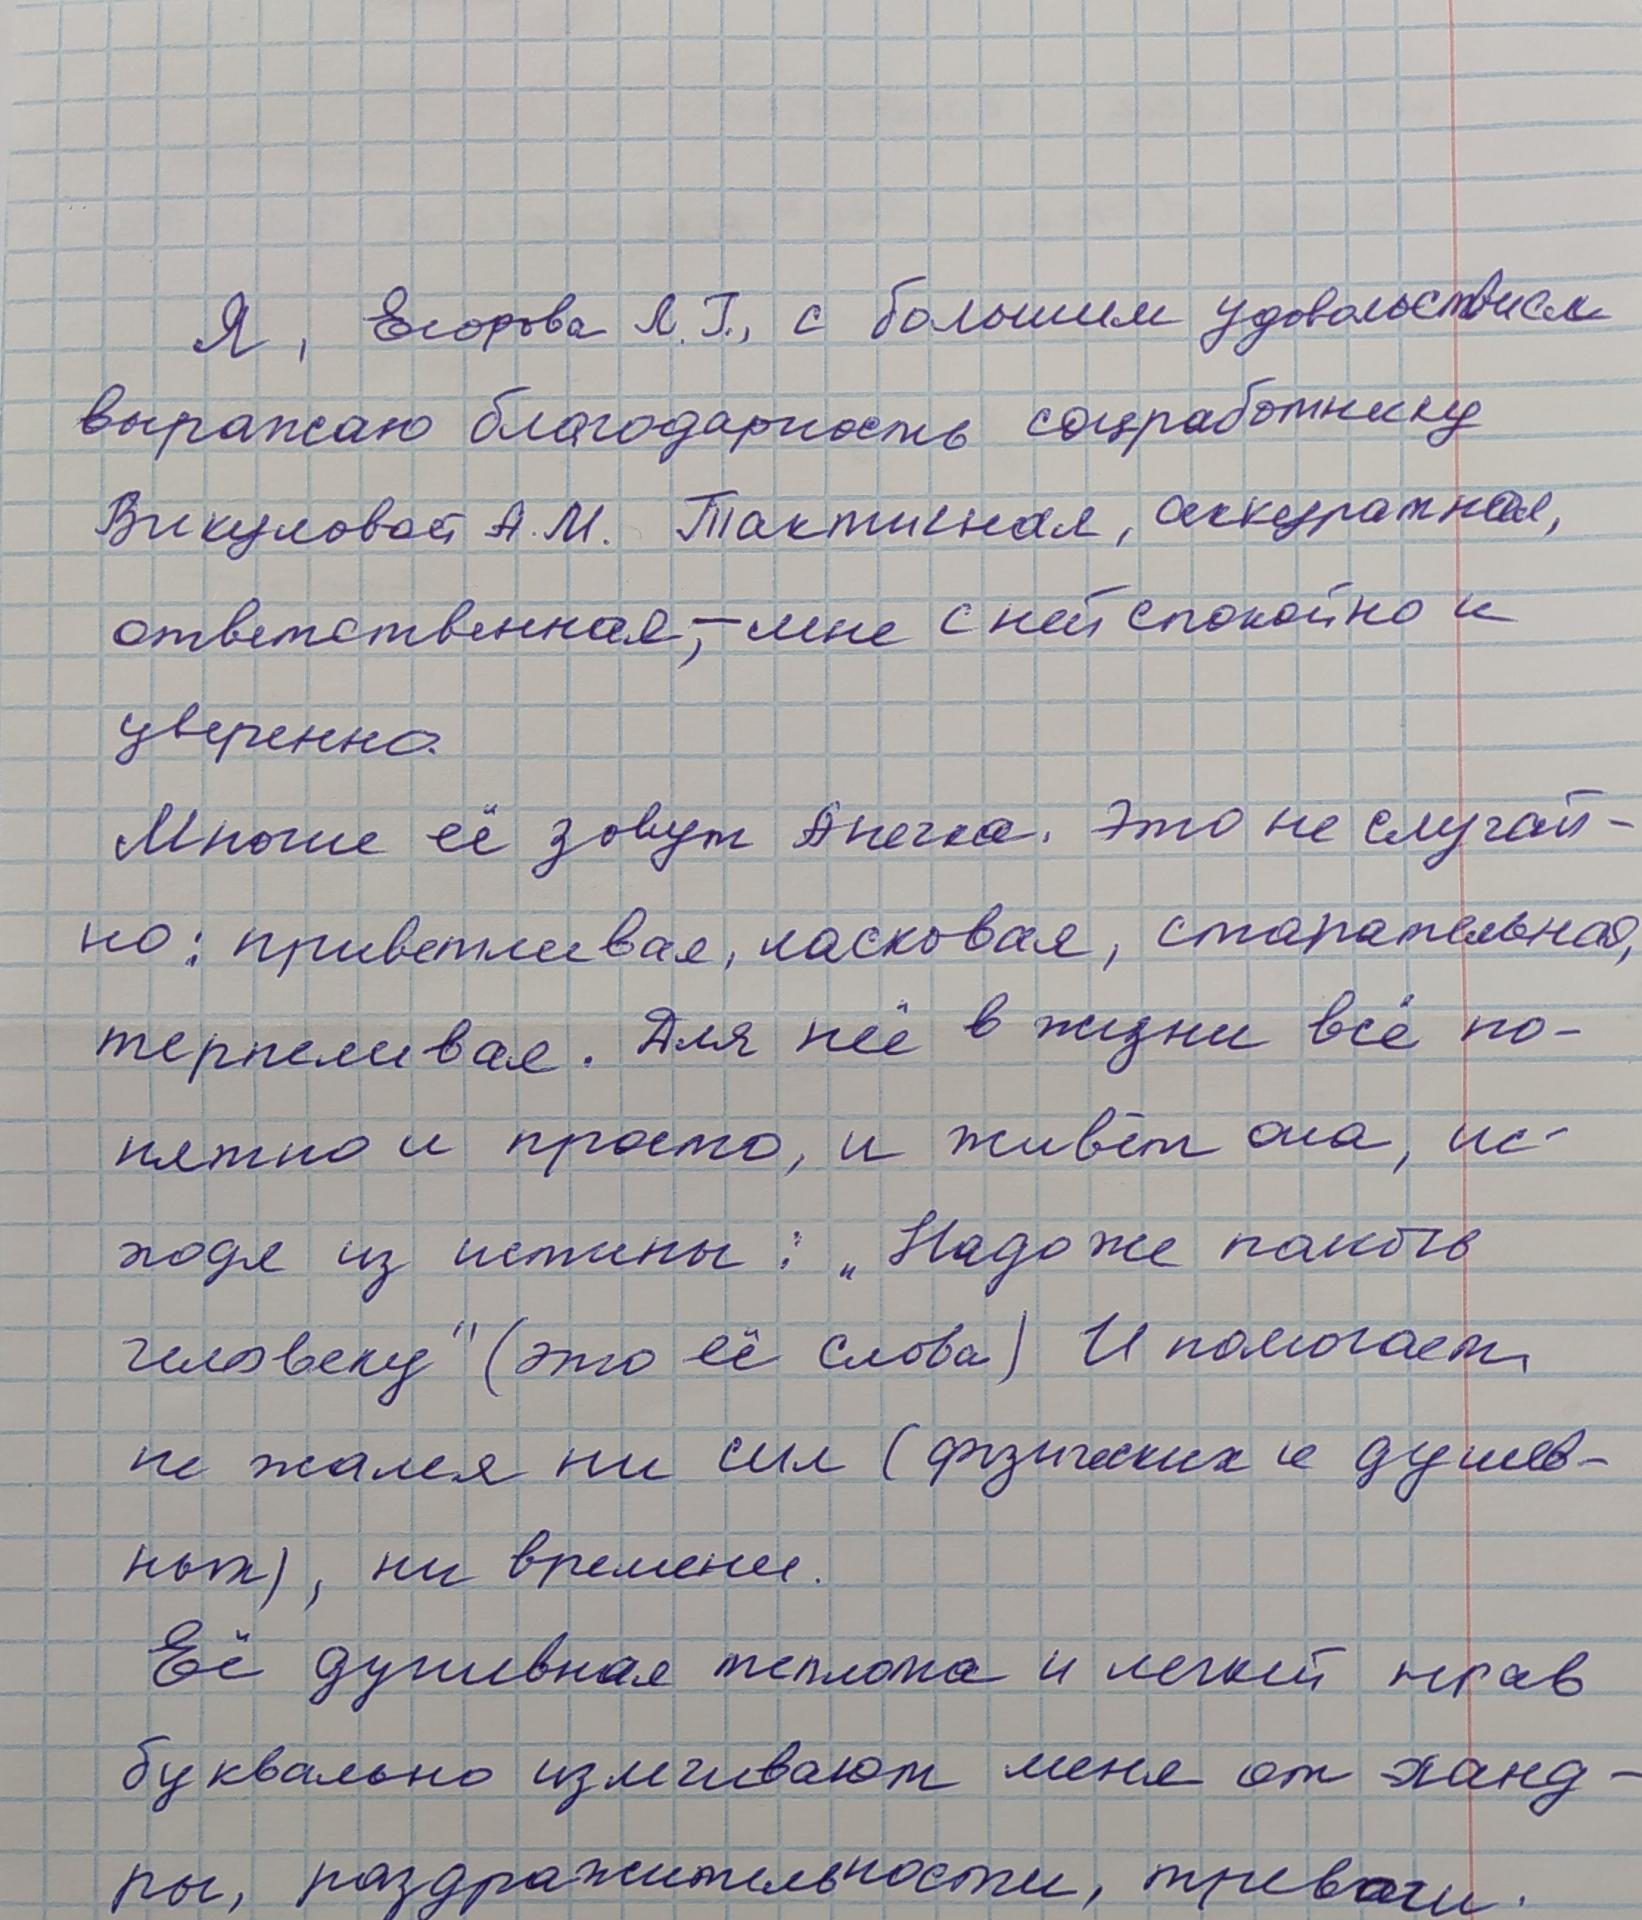 Я, Егорова Л.Г., с большим удовольствием
выражаю благодарность соцработнику
Викуловой А.М. Тактичная, аккуратная,
ответственная, – мне с ней спокойно и
уверенно.
Многие её зовут Анечка. Это не случай-
но: приветливая, ласковая, старательная,
терпеливая. Для неё в жизни всё по-
нятно и просто, и живёт она, ис-
ходя из истины: „Надо же помочь
человеку" (это её слова) И помогает,
не жалея ни сил (физических и душев-
ных), ни времени.
Её душевная теплота и легкий нрав
буквально излечивают меня от ханд-
ры, раздражительности, тревоги.